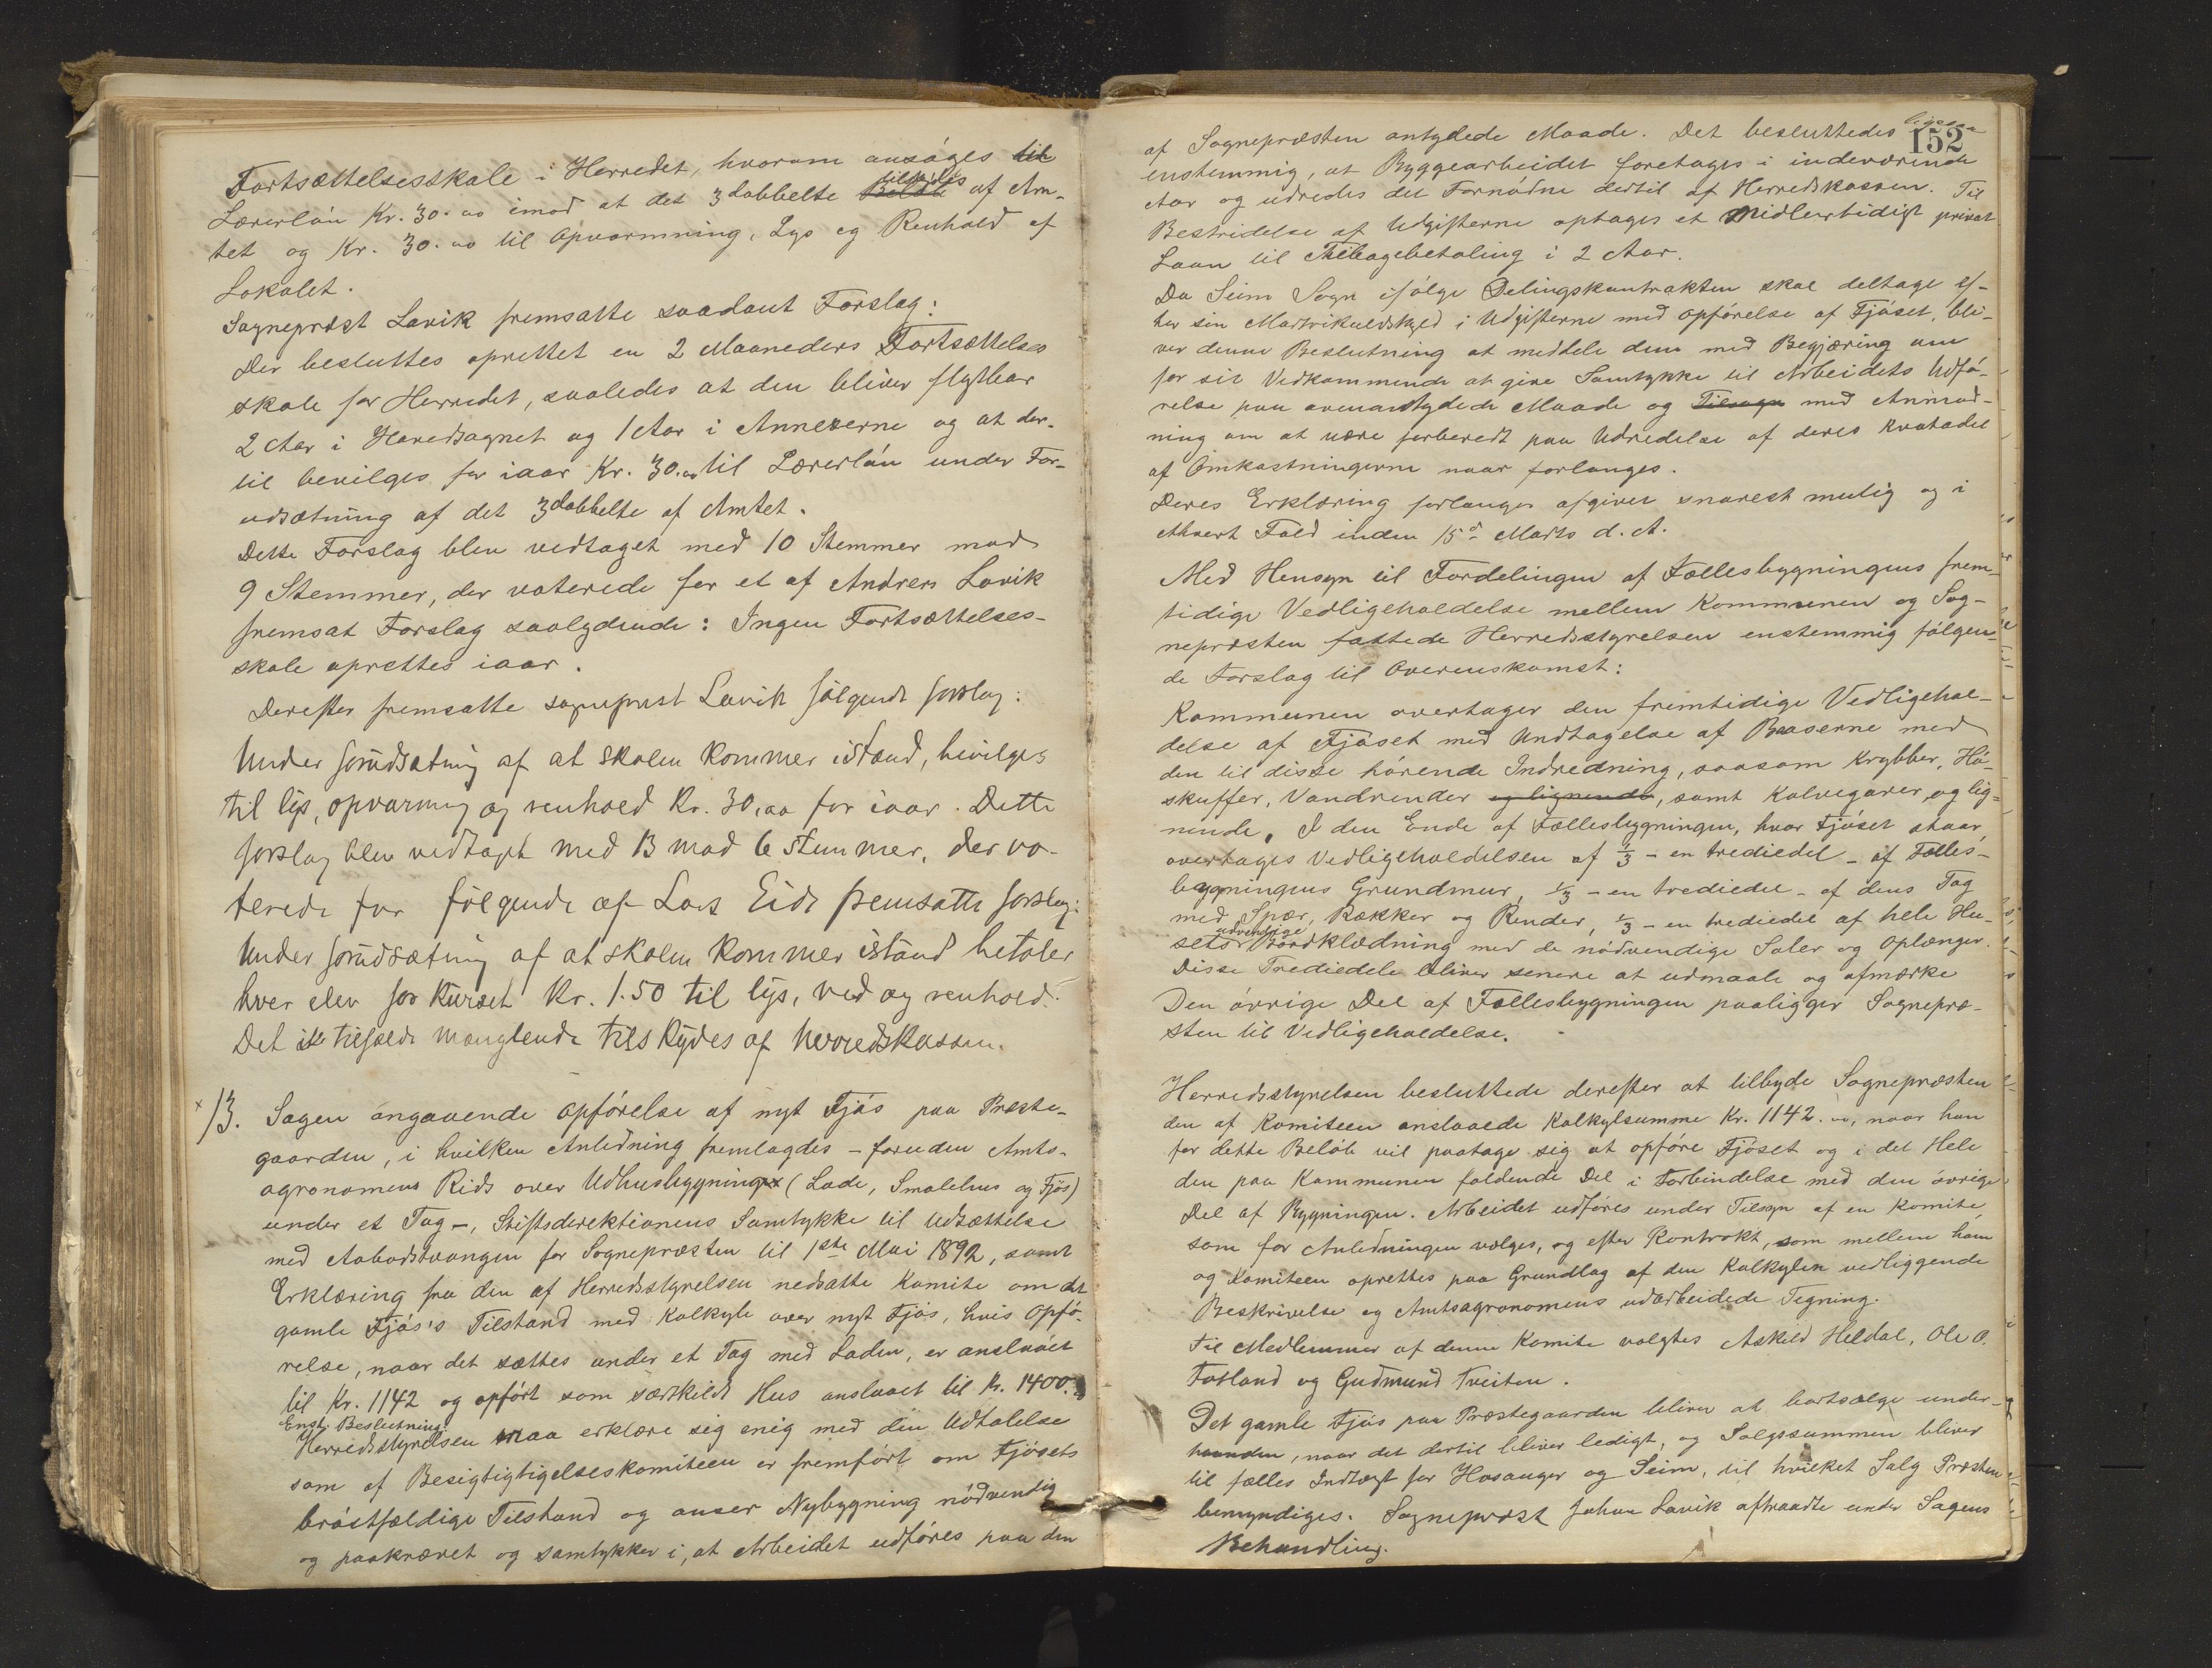 Fortsættelsesskole i Herredet, hvorom ansøges til
Lærerløn Kr. 30.00 imod at det 3dobbelte Beløb tilskydes af Am-
tet og Kr. 30.00 til Opvarmning, Lys og Renhold af
Lokalet.
Sogneprest Lavik fremsatte saadant Forslag:
Der besluttes oprettet en 2 Maaneders Fortsættelses
skole for Herredet, saaledes at den bliver flytbar
2 Aar i Hovedsognet og 1 Aar i Annexerne og at der-
til bevilges for iaar Kr. 30.00 til Lærerløn under For-
udsætning af det 3dobbelte af Amtet.
Dette Forslag blev vedtaget med 10 Stemmer mod
9 Stemmer, der voterede for et af Andreas Lavik
fremsat Forslag saalydende: Ingen Fortsættelses-
skole oprettes iaar.
Derefter fremsatte sogneprest Lavik følgende forslag:
Under forudsætning af at skolen kommer istand, bevilges
til lys, opvarmng og renhold Kr. 30,00 for iaar. Dette
forslag blev vedtaget med 13 mod 6 stemmer, der vo-
terede for følgende af Lars Eide fremsatte forslag:
Under forudsætning af at skolen kommer istand betaler
hver elev for kurset Kr. 1.50 til lys, ved og renhold.
Det i tilfælde manglende tilskydes af herredskassen.
x 13. Sagen angaaende Opførelse af nyt Fjøs paa Præste-
gaarden, i hvilken Anledning fremlagdes – foruden Amts-
agronomens Rids over Udhusbygninger (Lade, Smalehus og Fjøs)
under et Tag –, Stiftsdirektionens Samtykke til Udsættelse
med Aabodstvangen for Sognepræsten til 1ste Mai 1892, samt
Erklæring fra den af Herredsstyrelsen nedsatte Komite om det
gamle Fjøs's Tilstand med Kalkyle over nyt Fjøs, hvis Opfø-
relse, naar det sættes under et Tag med Laden, er anslaaet
til Kr. 1142 og opført som særskilt Hus anslaaet til Kr. 1400.
Enst. Beslutning:
Herredsstyrelsen maa erklære sig enig med den Udtalelse
som af Besigtigtigelseskomiteen er fremført om Fjøsets
brøstfældige Tilstand og anser Nybygning nødvendig
og paakrævet og samtykker i, at Arbeidet udføres paa den
152
af Sognepræsten antydede Maade. Det besluttedes ligesaa
enstemmig, at Byggearbeidet foretages i indeværende
Aar og udredes det Fornødne dertil af Herredskassen. Til
Bestridelse af Udgifterne optages et Midlertidigt privat
Laan til Tilbagebetaling i 2 Aar.
Da Seim Sogn ifølge Delingskontrakten skal deltage ef-
ter sin Matrikulskyld i Udgifterne med Opførelse af Fjøset, bli-
ver denne Beslutning at meddele dem med Begjæring om
for sit Vedkommende at give Samtykke til Arbeidets Udfø-
relse paa ovenantydede Maade og Tilsagn med Anmod-
ning om at være forberedt paa Udredelse af deres Kvotadel
af Omkostningerne naar forlanges.
Deres Erklæring forlanges afgiven snarest mulig og i
Ethvert Fald inden 15de Marts d. A.
Med Hensyn til Fordelingen af Fællesbygningens frem-
tidige Vedligeholdelse mellem Kommunen og Sog-
nepræsten fattede Herredsstyrelsen enstemmig følgen-
de Forslag til Overenskomst:
Kommunen overtager den fremtidige Vedligehol-
delse af Fjøset med Undtagelse af Baaserne med
den til disse hørende Indredning, saasom Krybber, Hø-
skuffer, Vandrender og lignende, samt Kalvegarer og lig-
nende. I den Ende af Fællesbygningen, hvor Fjøset staar,
overtages Vedligeholdelsen af 1/3 – en trediedel – af Fælles-
bygningens Grundmur, 1/3 – en trediedel – af dens Tag
med Spær, Rækker og Render, 1/3 – en trediedel af hele Hu-
sets udvendige Bordklædning med de nødvendige Soler og Oplænger.
Disse Trediedele bliver senere at udmaale og afmærke
Den øvrige Del af Fællesbygningen paaligger Sognepræ-
sten til Vedligeholdelse.
Herredsstyrelsen besluttede derefter at tilbyde Sognepræsten
den af Komiteen anslaaede Kalkylsumme Kr. 1142.00, naar han
for dette Beløb vil paatage sig at opføre Fjøset og i det Hele
den paa Kommunen faldende Del i Forbindelse med den øvrige
Del af Bygningen. Arbeidet udføres under Tilsyn af en Komite,
som for Anledningen vælges, og efter Kontrakt, som mellem ham
og Komiteen oprettes paa Grundlag af den Kalkylen vedliggende
Beskrivelse og Amtsagronomens udarbeidede Tegning.
Til Medlemmer af denne Komite valgtes Askild Heldal, Ole O.
Fotland og Gudmund Tveiten.
Det gamle Fjøs paa Præstegaarden bliver at bortsælge under-
haanden, naar det dertil bliver ledigt, og Salgssummen bliver
til fælles Indtægt for Hosanger og Seim, til hvilket Salg Præsten
bemyndiges. Sogneprest Johan Lavik aftraadte under Sagens
Behandling.